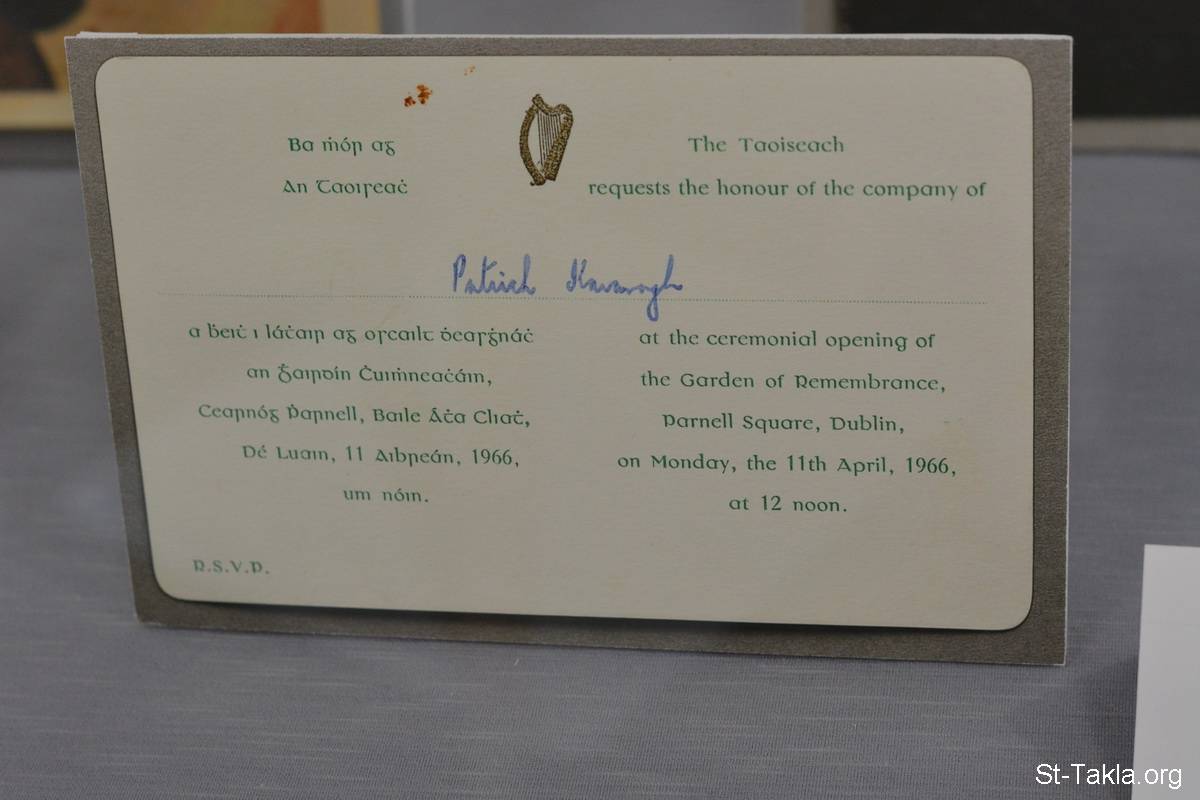 Ba ṁór ag
An Taoiseaċ
The Taoiseach
requests the honour of the company of
Patrick Kavanagh
a ḃeiṫ i láṫair ag oscailt ḋeasġnáċ
an Ġairdín Ċuiṁneaċáin,
Cearnóg Ṗarnell, Baile Áṫa Cliaṫ,
Dé Luain, 11 Aibreán, 1966,
um nóin.
at the ceremonial opening of
the Garden of Remembrance,
Parnell Square, Dublin,
on Monday, the 11th April, 1966,
at 12 noon.
R.S.V.P.
St-Takla.org